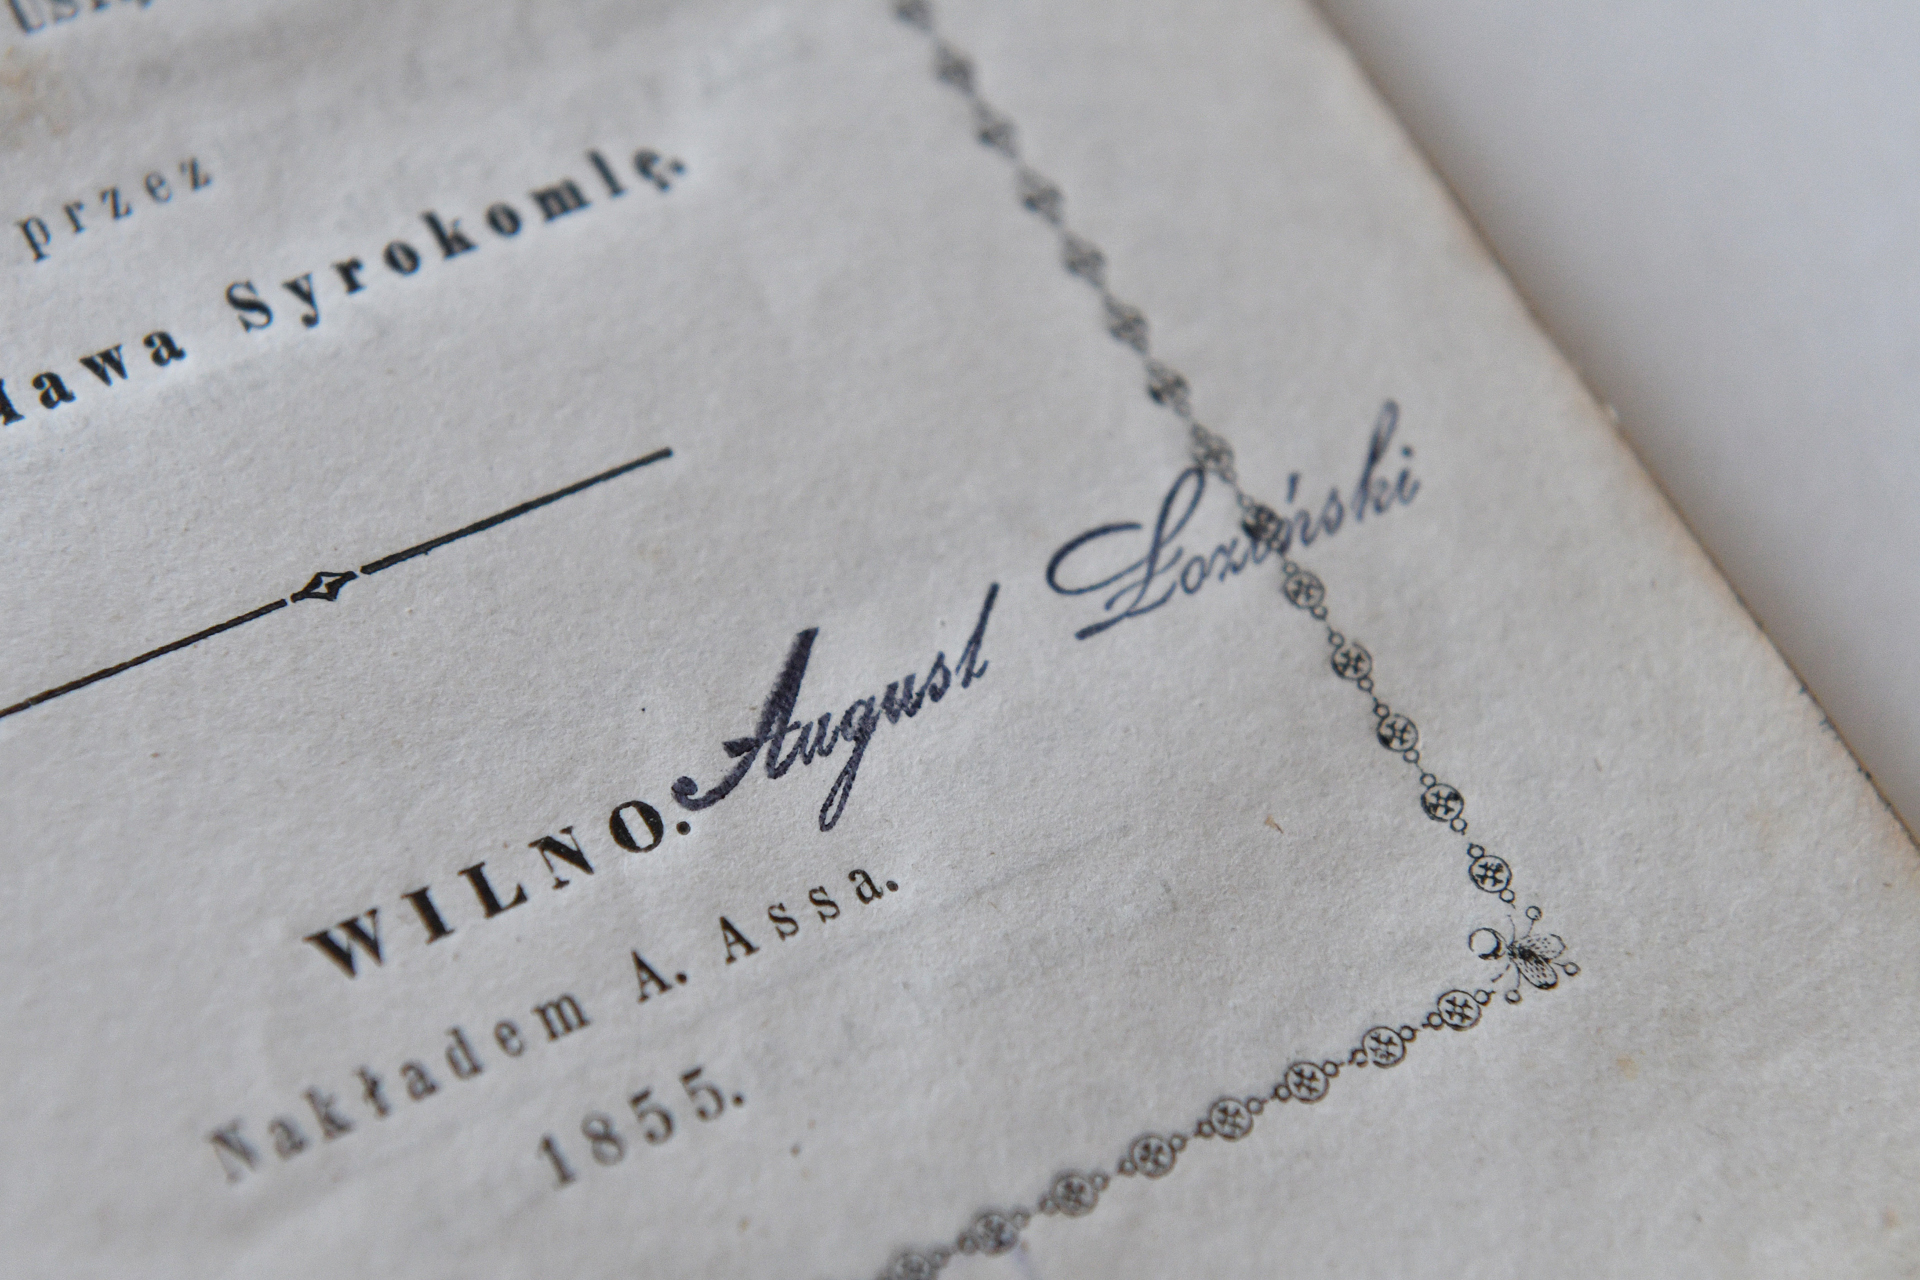 przez
ława Syrokomlę.
August Łoziński
WILNO.
Nakładem A. Assa.
1855.